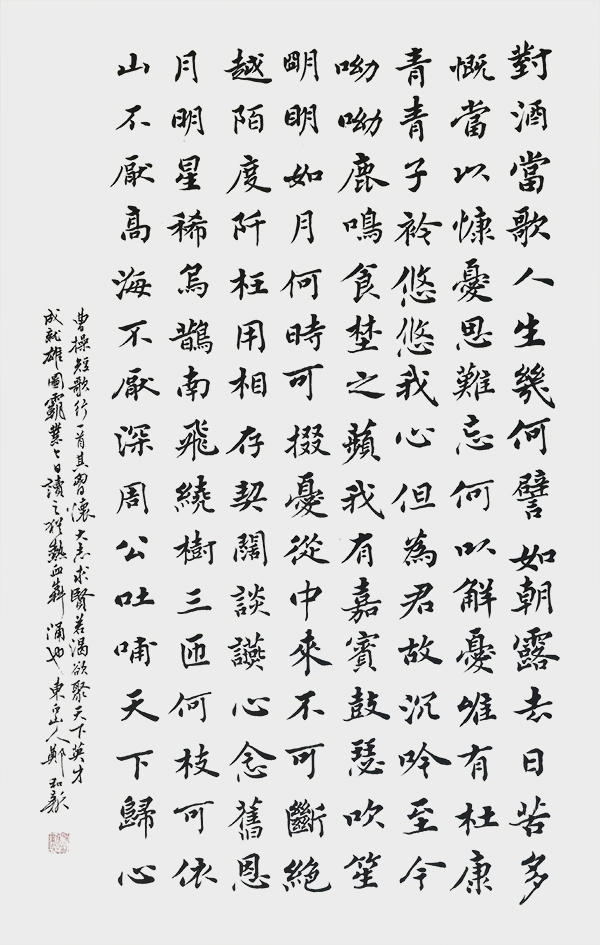 對酒當歌人生幾何譬如朝露去日苦多
慨當以慷憂思難忘何以解憂唯有杜康
青青子衿悠悠我心但為君故沉吟至今
呦呦鹿鳴食埜之蘋我有嘉賓鼓瑟吹笙
明明如月何時可掇憂從中來不可斷絕
越陌度阡枉用相存契闊談讌心念舊恩
月明星稀烏鵲南飛繞樹三匝何枝可依
山不厭高海不厭深周公吐哺天下歸心
曹操短歌行一首其胷懷大志求賢若渴欲聚天下英才
成就雄圖霸業今日讀之猶熱血犇涌也東山人鄭